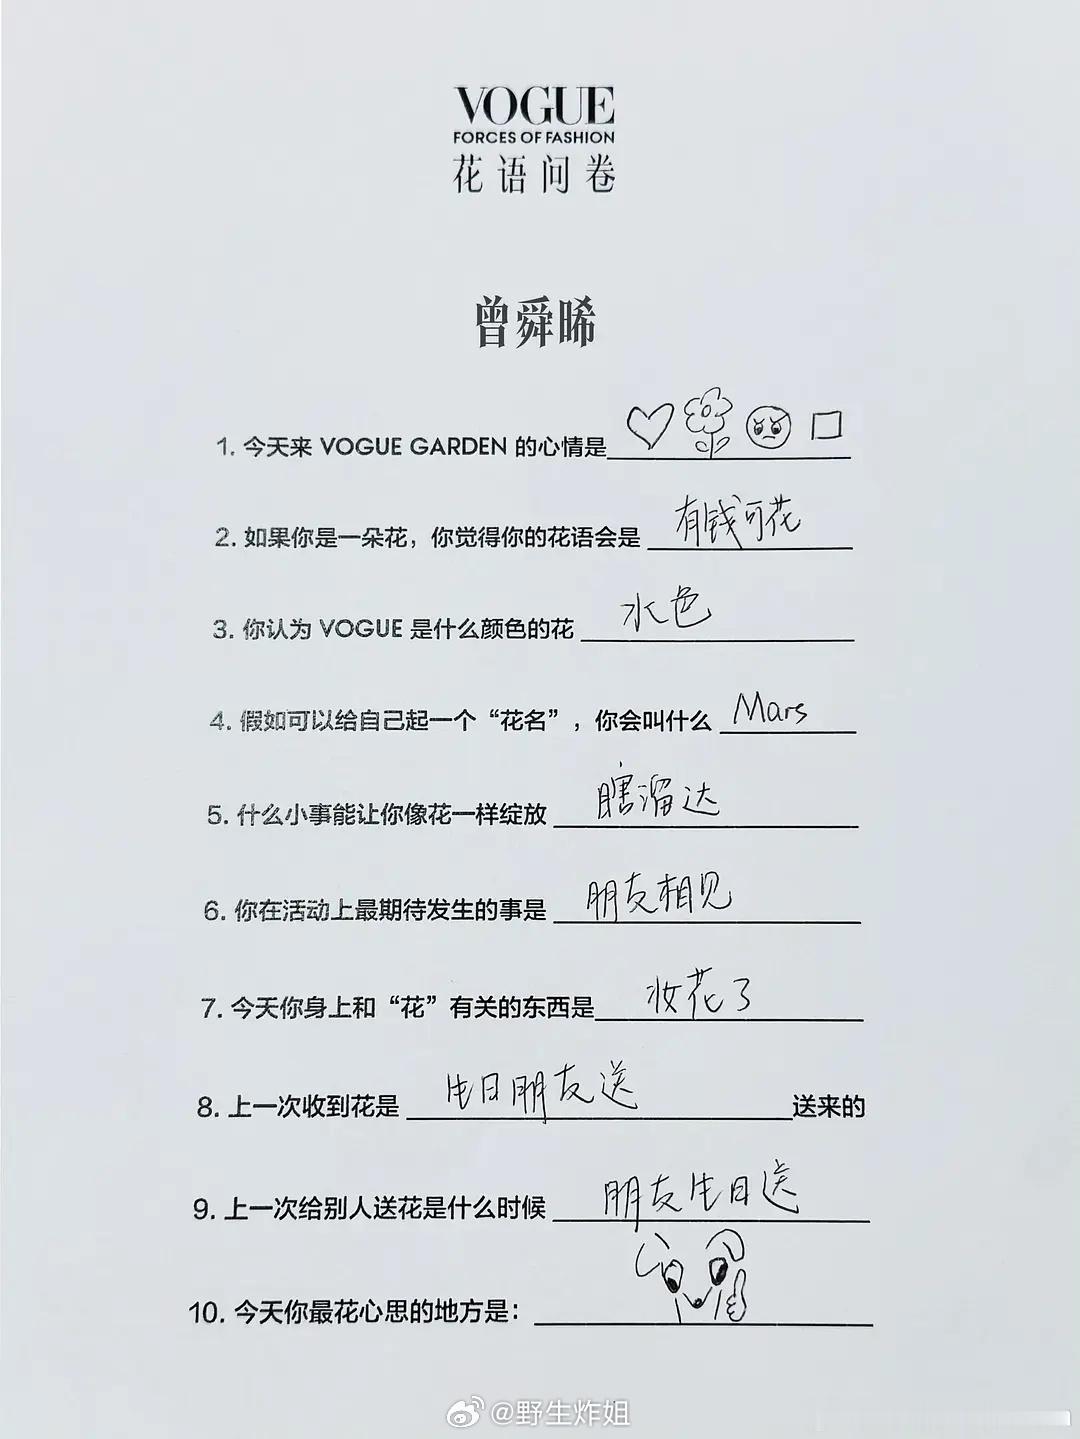 VOGUE
FORCES OF FASHION
花语问卷
曾舜晞
1. 今天来 VOGUE GARDEN 的心情是
2. 如果你是一朵花，你觉得你的花语会是 有钱可花
3. 你认为 VOGUE 是什么颜色的花 水色
4. 假如可以给自己起一个“花名”，你会叫什么 Mars
5. 什么小事能让你像花一样绽放 瞎溜达
6. 你在活动上最期待发生的事是 朋友相见
7. 今天你身上和“花”有关的东西是 妆花了
8. 上一次收到花是 生日朋友送 送来的
9. 上一次给别人送花是什么时候 朋友生日送
10. 今天你最花心思的地方是：
@野生炸姐